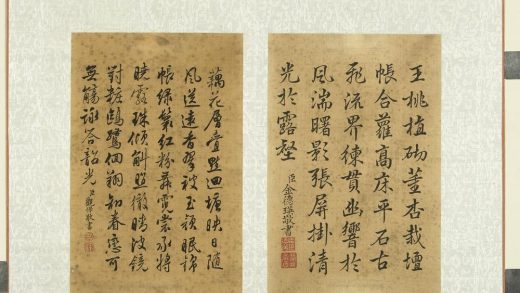 王桃植砌董杏栽壇
帳合蘿高床平石古
飛流界練貫幽響於
風湍曙影張屏掛清
光於露壑 臣金德瑛敬書
藕花層疊點迴塘映日隨
風送遠香翠被玉顏眠錦
帳綠紅粉舞霓裳承將
曉露珠傾斛照徹晴波鏡
對粧鷗鷺徊翔知眷戀可
無觴詠答韶光 臣觀保敬書